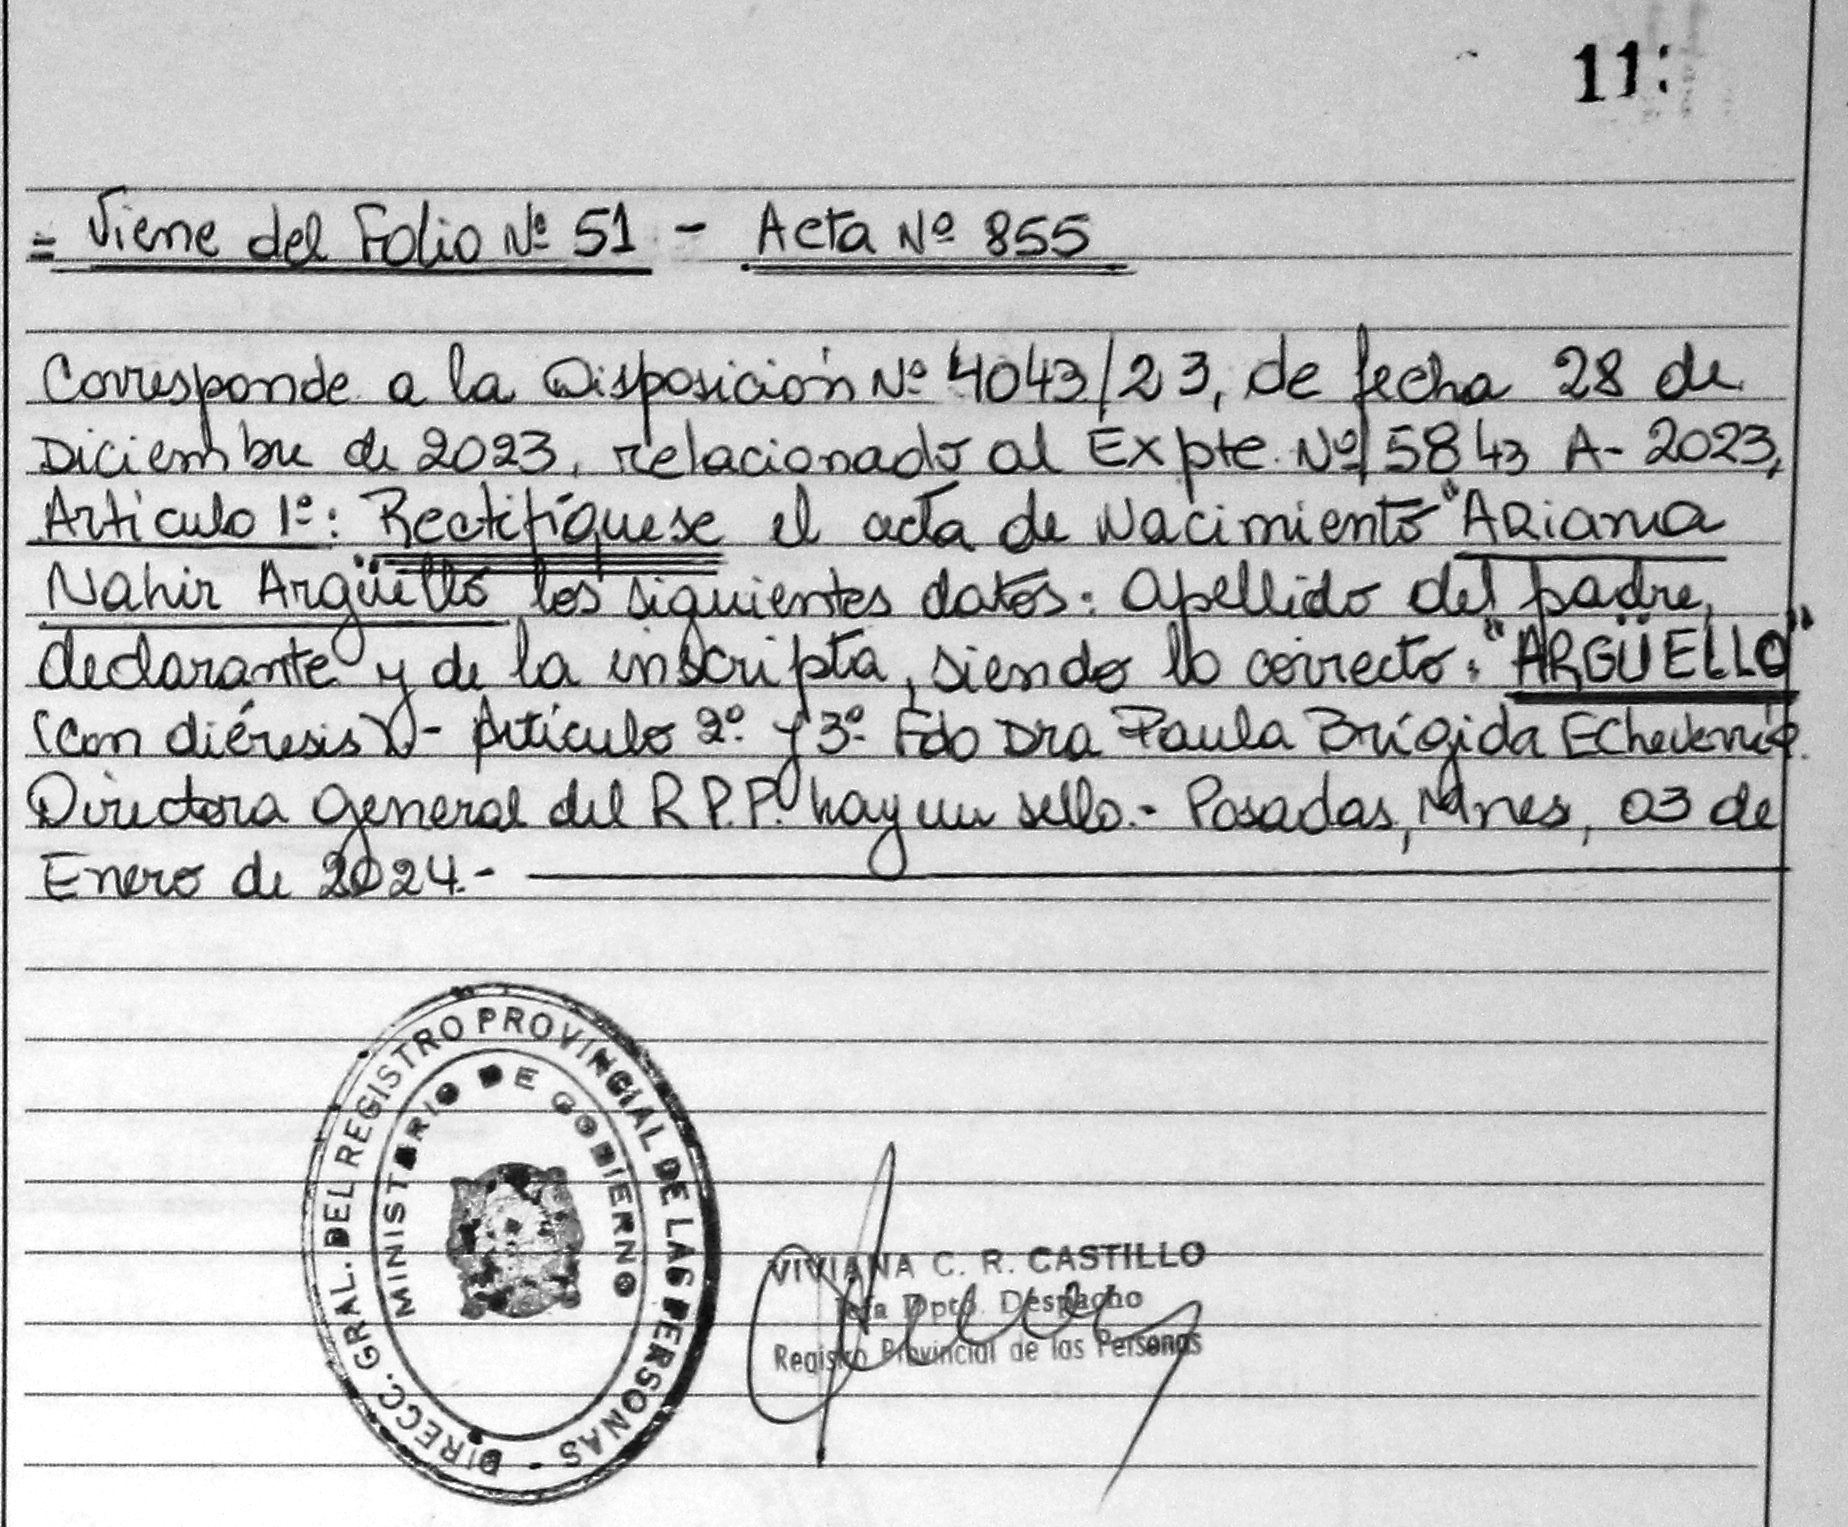 11:
= Viene del Folio Nº 51 - Acta Nº 855
Corresponde a la Disposición Nº 4043/23, de fecha 28 de
Diciembre de 2023, relacionado al Expte. Nº 5843 A- 2023,
Artículo 1º: Rectifíquese el acta de Nacimiento "ARiana
Nahir Argüello los siguientes datos: apellido del padre,
declarante y de la inscripta, siendo lo correcto: "ARGÜELLO"
(con diéresis)- Artículo 2º y 3º Fdo Dra Paula Brígida Echeverría.
Directora General del R.P.P. hay un sello.- Posadas, Mnes, 03 de
Enero de 2024.-
DIRECC. GRAL. DEL REGISTRO PROVINCIAL DE LAS PERSONAS -
MINISTERIO DE GOBIERNO
VIVIANA C. R. CASTILLO
Jefa Dpto. Despacho
Registro Provincial de las Personas